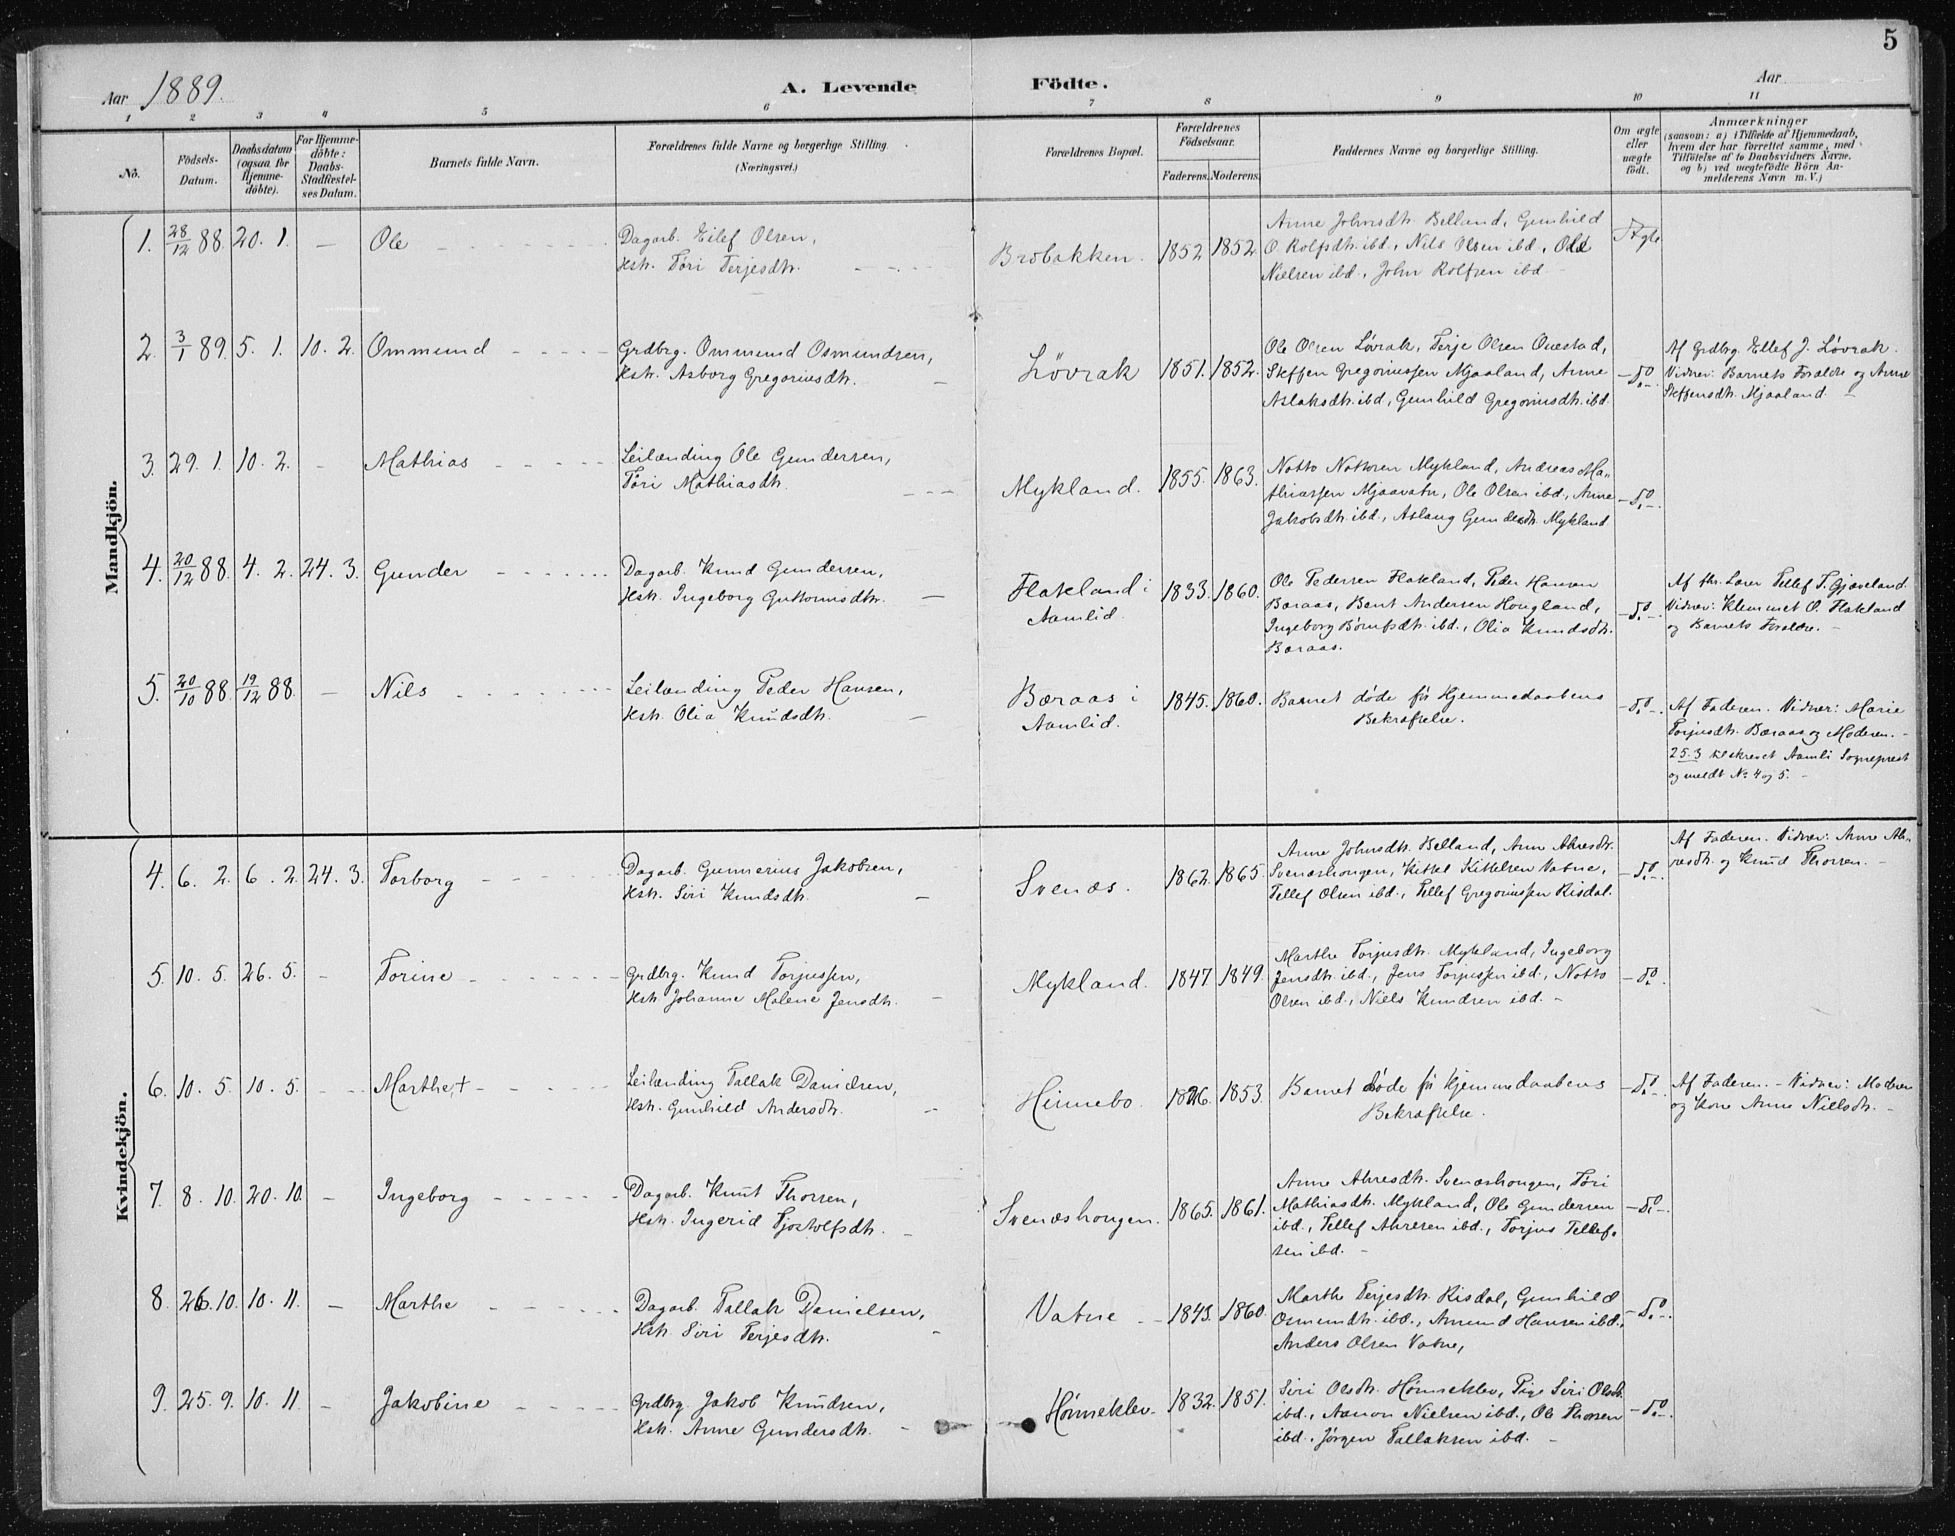 5
Aar 1889.
A. Levende Födte.
Aar
1 2 3 4 5 6 7 8 9 10 11
No.
Födsels-
Datum.
Daabsdatum
(ogsaa for
Hjemme-
döbte).
For Hjemme-
döbte:
Daabs-
Stadfestel-
ses Datum.
Barnets fulde Navn.
Forældrenes fulde Navne og borgerlige Stilling
(Næringsvei.)
Forældrenes Bopæl.
Forældrenes
Födselsaar.
Faderens. Moderens.
Faddernes Navne og borgerlige Stilling.
Om ægte
eller
uægte
födt.
Anmærkninger
(saasom: a) i Tilfælde af Hjemmedaab,
hvem der har forrettet samme, med
Tilföielse af to Daabsvidners Navne,
og b) ved uægtefödte Börn An-
melderens Navn m. V.)
Mandkjön.
1. 28/12 88. 20. 1. — Ole
Dagarb. Eilef Olsen,
Hstr. Tori Terjesdtr.
Brobakken. 1852 1852.
Anne Johnsdtr. Belland, Gunhild
O Rolfsdtr. ibd., Nils Olsen ibd., Ole
Nielsen ibd., John Rolfsen ibd
Ægte
2. 3/1 89. 5. 1. 10. 2. Ommund
Grdbrg. Ommund Osmundsen,
Hstr. Asborg Gregoriusdtr.
Løvrak 1851. 1852.
Ole Olsen Løvrak, Terje Olsen Ouestad,
Steffen Gregoriussen Mjaaland, Anne
Aslaksdtr. ibd., Gunhild Gregoriusdtr. ibd
—do—.
Af Grdbrg. Ellef J. Løvrak.
Vidner: Barnets Forældre og Anne
Steffensdtr. Mjaaland. —
3. 29. 1. 10. 2. — Mathias
Leilænding Ole Gundersen,
Tori Mathiasdtr.
Mykland. 1855. 1863.
Notto Nottosen Mykland, Andreas Ma-
thiassen Mjaavatn, Ole Olsen ibd., Anne
Jakobsdtr. ibd., Aslaug Gundersdtr. Mykland
—do—.
4. 20/12 88. 4. 2. 24. 3. Gunder
Dagarb. Knud Gundersen,
Hstr. Ingeborg Guttormsdtr.
Flakland i
Aamlid. 1833. 1860.
Ole Pedersen Flakland, Peder Hansen
Baraas, Bent Andersen Hougland,
Ingeborg ibd., Olia Knudsdtr.
Baraas.
—do—.
Af fhv. Lærer Tellef T. Gjæveland
Vidner: Klemmet O. Flakland
og Barnets Forældre. —
5. 20/10 88. 19/12 88. — Nils
Leilænding Peder Hansen,
Hstr. Olia Knudsdtr.
Bæraas i
Aamlid. 1845. 1860.
Barnet døde før Hjemmedaabens
Bekræftelse.
—do—.
Af Faderen. Vidner: Marie
Torjusdtr. Bæraas og Moderen. —
25.3 tilskrevet Aamli Sogneprest
og meldt No 4 og 5. —
Kvindekjön.
4. 6. 2. 6. 2. 24. 3. Torborg
Dagarb. Gunnerius Jakobsen,
Hstr. Siri Knudsdtr.
Svenæs. 1862. 1865.
Anne Johnsdtr. Belland, Anne Ahresdtr.
Svenæshougen, Kittel Kittelsen Vatne,
Tellef Olsen ibd., Tellef Gregoriussen Risdal.
—do—.
Af Faderen. Vidner: Anne Ah-
resdtr. og Knud Thorsen. —
5. 10. 5. 26. 5. — Torine
Grdbrg. Knud Torjussen,
Hstr. Johanne Malene Jensdtr.
Mykland. 1847 1849.
Marthe Torjusdtr. Mykland, Ingeborg
Jensdtr. ibd., Jens Torjussen ibd., Notto
Olsen ibd., Niels Knudsen ibd. —
—do.
6. 10. 5. 10. 5. — Marthe, +
Leilænding Tallak Danielsen,
Hstr. Gunhild Andersdtr.
Hinnebo 1846. 1853.
Barnet døde før Hjemmedaabens
Bekræftelse.
—do—.
Af Faderen. — Vidner: Moderen
og Kone Anne Nielsdtr. —
7. 8. 10. 20. 10. — Ingeborg
Dagarb. Knut Thorsen,
Hstr. Ingerid Tjostolfsdtr.
Svenæshougen. 1865. 1861.
Anne Ahresdtr. Svenæshougen, Tori
Mathiasdtr. Mykland, Ole Gundersen
ibd., Tellef Ahresen ibd., Torjus Tellef-
sen ibd. —
—do—.
8. 26. 10. 10. 11. — Marthe
Dagarb. Tallak Danielsen,
Hstr. Siri Terjesdtr.
Vatne 1843. 1860.
Marthe Terjesdtr. Risdal, Gunhild
Osmundtr. ibd., Amund Hansen ibd.,
Anders Olsen Vatne,
—do—.
9. 25. 9. 10. 11. — Jakobine
Grdbrg. Jakob Knudsen,
Hstr. Anne Gundersdtr.
Hønneklev. 1832. 1851.
Siri Olsdtr. Hønneklev, Pige Siri Olsdtr.
ibd., Aanon Nielsen ibd., Ole Thorsen
ibd., Jørgen Tallaksen ibd. —
—do—.